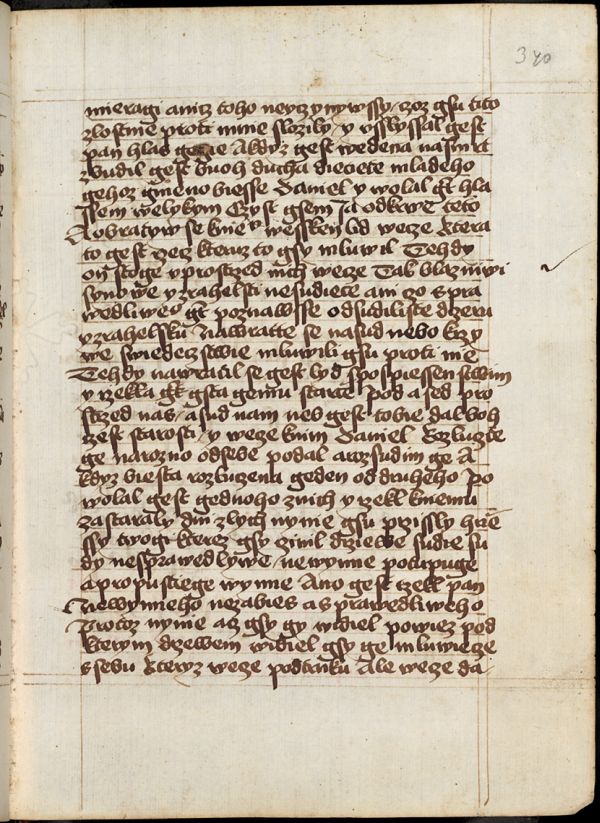 340
mieragi anicz toho neuczynywssy czoz gsu tito
zlostnie proti mnie slozily y vsslyssal gest
pan hlas gegie Akdyz gest wedena nasmrt
zbudil gest buoh ducha dietiete mladeho
gehoz gmeno biesse Daniel y wolal gt hla
ssem welykym Czyst gsem Ja odkrwe teto
Aobratyw se knie wesskeren lid wece Ktera
to gest rzecz kteruz to gsy mluwil Tehdy
on stoge vprostrzed nich wece Tak blazniwi
synowe yzrahelsti nesudiece ani czo spra
wedliweo gt poznawsse odsudiliste dczeru
yzrahelsku Nawratte se nasud nebo krzy
we swiedecz stwie mluwili gsu proti nie
Tehdy nawratil se gest lyd spospiessenstwim
y rzekla gt gsta gemu starce Pod a sed pro
strzed nas / a sud nam neb gest tobie dal boh
czest starosti / y wece knim Daniel Rozluczte
ge narozno odsebe podal a rozsudim ge A
kdyz biesta rozluczena geden od druheho Po
wolal gest gednoho znich y rzekl kniemu
zastaraly dni zlych nynie gsu przissly hrzie
ssy twogi kterez gsy czinil drziewe sudie su
dy nesprawedlywe / newynne potupuge
a propustiege wynne Ano gest rzekl pan
Newynneho nezabies a sprawedliweho
Protoz nynie az gsy gy widiel powiez pod
kterym drzewem widiel gsy ge mluwiece
s sebu Kteryz wece podtrnku Ale wece da